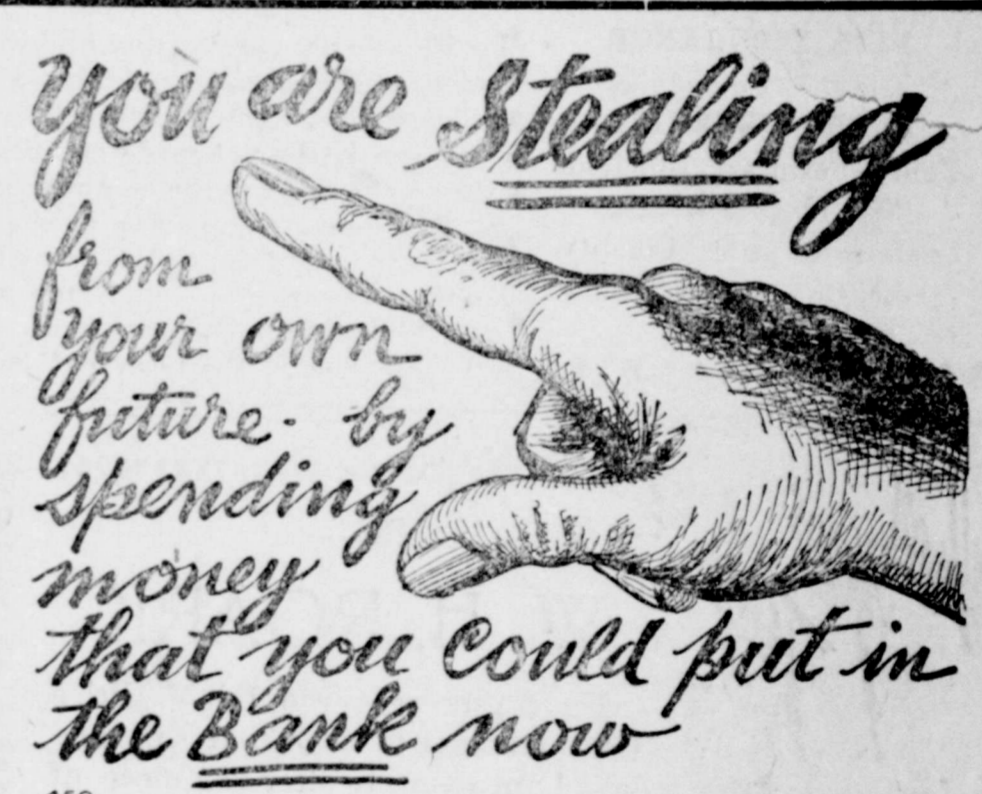 you are Stealing
from
your own
future - by
spending
money
that you could put in
the Bank now